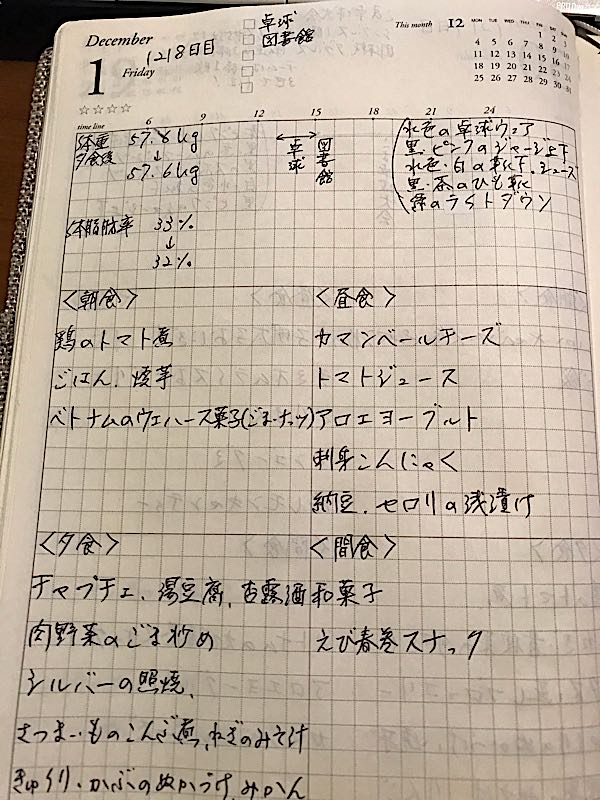 December
1
Friday
1218日目
卓球
図書館
This month 12
MON TUE WED THU FRI SAT SUN
1 2 3
4 5 6 7 8 9 10
11 12 13 14 15 16 17
18 19 20 21 22 23 24
25 26 27 28 29 30 31
☆☆☆☆
time line 6 9 12 15 18 21 24
体重 57.8kg
夕食後 ↓
57.6kg
体脂肪率 33%
↓
32%
卓球
図書館
水色の卓球ウェア
黒・ピンクのジャージ上下
水色・白の靴下、シューズ
黒・茶のひも靴
緑のライトダウン
<朝食>
鶏のトマト煮
ごはん、焼芋
ベトナムのウェハース菓子(ごま・ナッツ)
<昼食>
カマンベールチーズ
トマトジュース
アロエヨーグルト
刺身こんにゃく
納豆、セロリの浅漬け
<夕食>
チャプチェ、湯豆腐、杏露酒
肉野菜のごま炒め
シルバーの照焼、
さつまいものこんぶ煮、ねぎのみそ汁
きゅうり・かぶのぬかづけ、みかん
<間食>
和菓子
えび春巻スナック